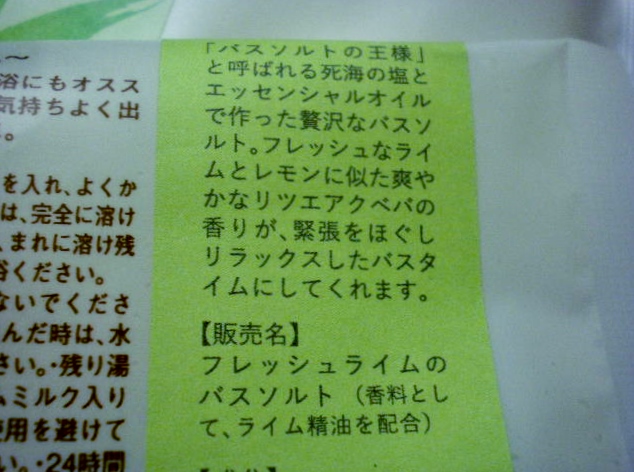 ～
浴にもオスス
気持ちよく出
。
を入れ、よくか
は、完全に溶け
、まれに溶け残
浴ください。
ないでくださ
んだ時は、水
さい。・残り湯
ムミルク入り
使用を避けて
い。・24時間
「バスソルトの王様」
と呼ばれる死海の塩と
エッセンシャルオイル
で作った贅沢なバスソ
ルト。フレッシュなライ
ムとレモンに似た爽や
かなリツエアクベバの
香りが、緊張をほぐし
リラックスしたバスタ
イムにしてくれます。
【販売名】
フレッシュライムの
バスソルト（香料とし
て、ライム精油を配合）